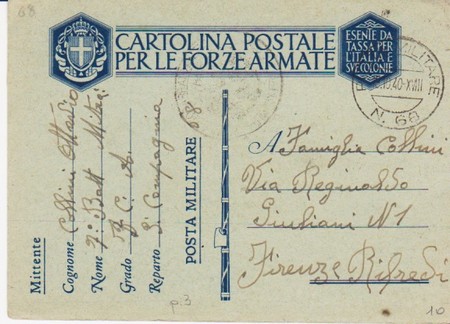 68
CARTOLINA POSTALE
PER LE FORZE ARMATE
ESENTE DA
TASSA PER
L'ITALIA E
SVE COLONIE
MILITARE
.10.40-XVIII
N. 68
Mittente
Cognome Collini Ottavio
Nome 7° Batt. Mitra.
Grado A.
Reparto 3ª Compagnia
POSTA MILITARE 68
A Famiglia Collini
Via Reginaldo
Giuliani N 1
Firenze Rifredi
p.3
10